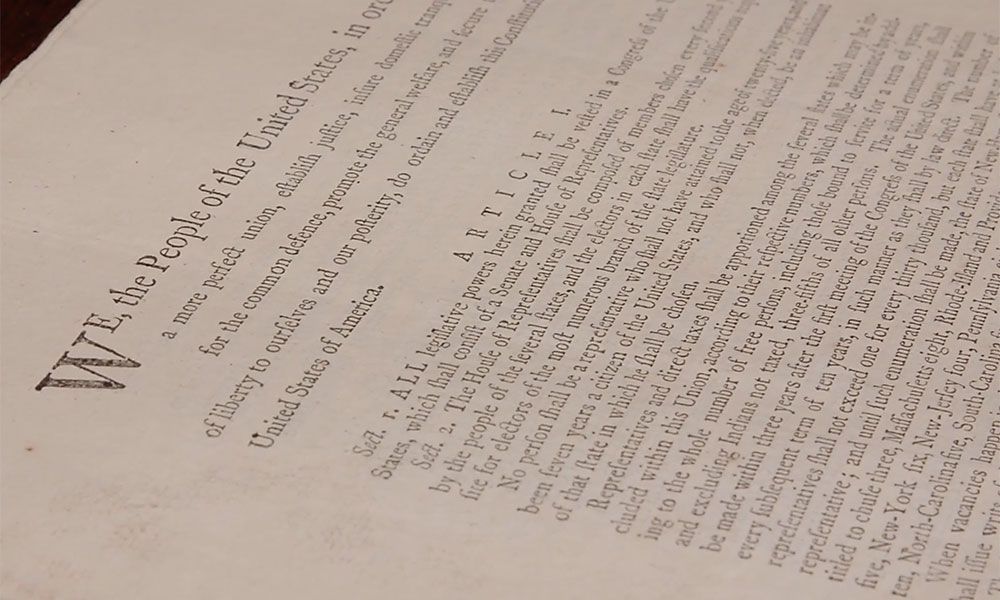 WE, the People of the United States, in ord
a more perfect union, eſtabliſh juſtice, inſure domeſtic tranq
for the common defence, promote the general welfare, and ſecure
of liberty to ourſelves and our poſterity, do ordain and eſtabliſh this Conſtitu
United States of America.
ARTICLE I.
Sect. 1. ALL legiſlative powers herein granted ſhall be veſted in a Congreſs of the U
States, which ſhall conſiſt of a Senate and Houſe of Repreſentatives.
Sect. 2. The Houſe of Repreſentatives ſhall be compoſed of members choſen every ſecond
by the people of the ſeveral ſtates, and the electors in each ſtate ſhall have the qualifications
ſite for electors of the moſt numerous branch of the ſtate legiſlature.
No perſon ſhall be a repreſentative who ſhall not have attained to the age of twenty-five years, and
been ſeven years a citizen of the United States, and who ſhall not, when elected, be an inhabitant
of that ſtate in which he ſhall be choſen.
Repreſentatives and direct taxes ſhall be apportioned among the ſeveral ſtates which may be in-
cluded within this Union, according to their reſpective numbers, which ſhall be determined by add-
ing to the whole number of free perſons, including thoſe bound to ſervice for a term of years,
and excluding Indians not taxed, three-fifths of all other perſons. The actual enumeration ſhall
be made within three years after the firſt meeting of the Congreſs of the United States, and within
every ſubſequent term of ten years, in ſuch manner as they ſhall by law direct. The number of
repreſentatives ſhall not exceed one for every thirty thouſand, but each ſtate ſhall have
repreſentative; and until ſuch enumeration ſhall be made, the ſtate of New-
titled to chuſe three, Maſſachuſetts eight, Rhode-Iſland and Provid
five, New-York ſix, New-Jerſey four, Pennſylvania
ten, North-Carolina five, South-Carolina
When vacancies happen
ſhall iſſue writs